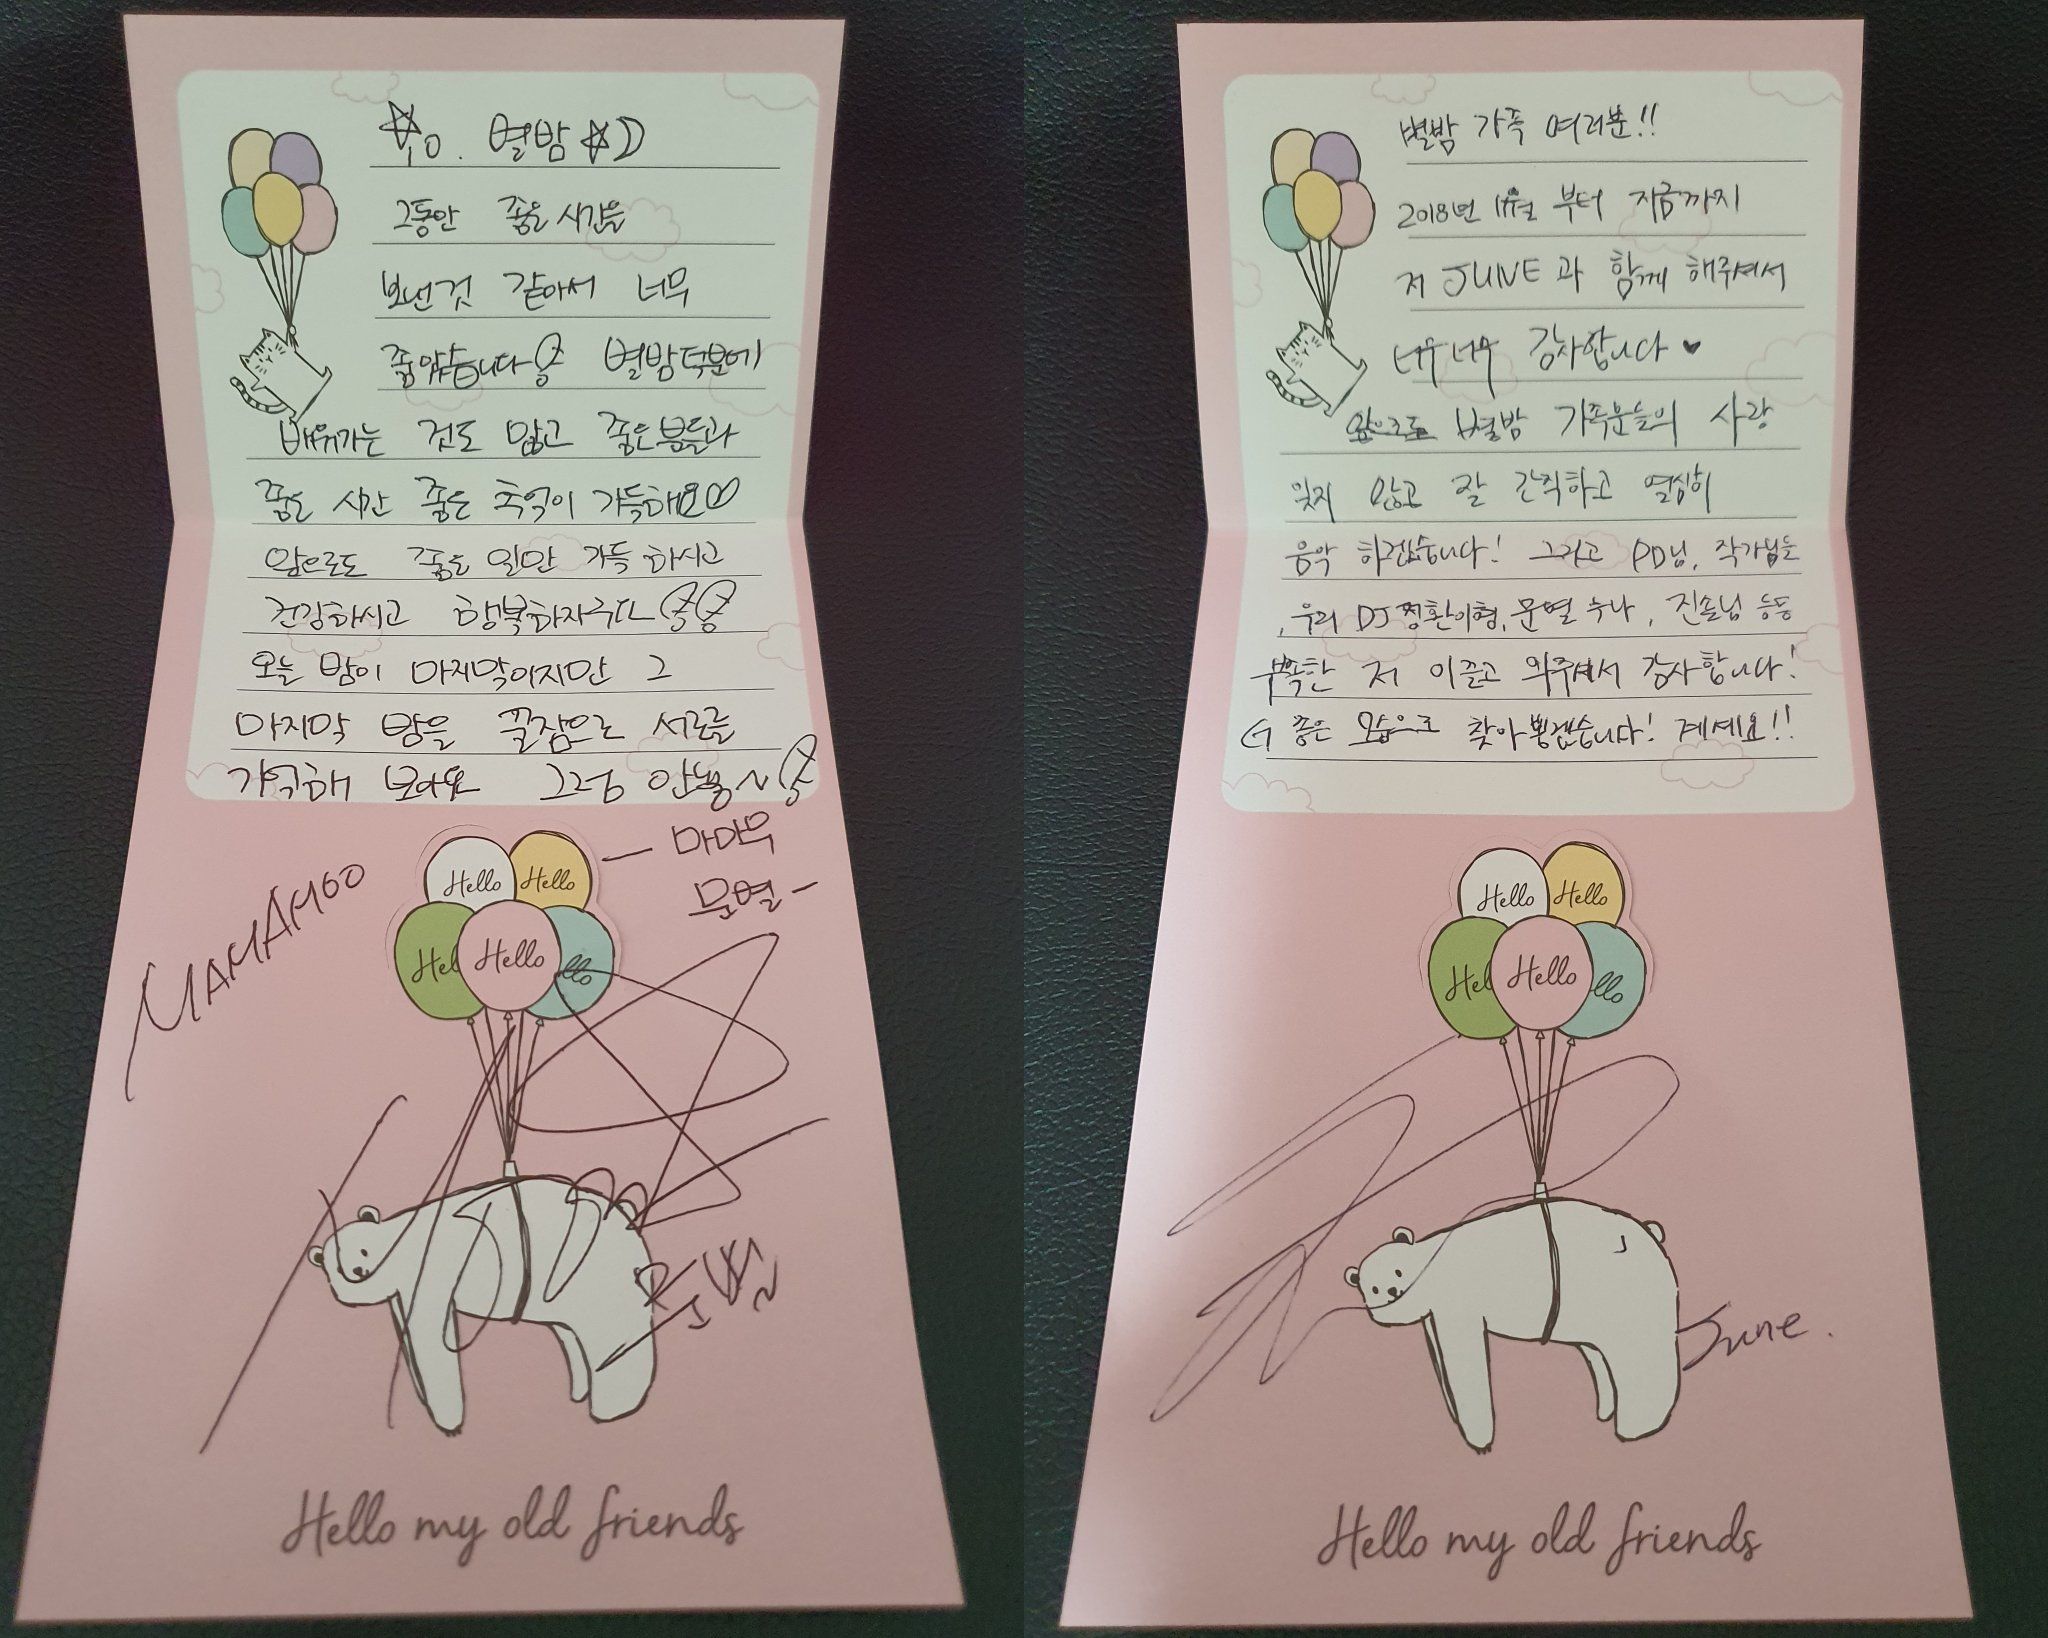 To. 별밤☆
그동안 좋은 시간을
보낸것 같아서 너무
좋았습니다 별밤덕분에
배워가는 것도 많고 좋은분들과
좋은 시간 좋은 추억이 가득해요♡
앞으로도 좋은 일만 가득 하시고
건강하시고 행복하자구나
오늘 밤이 마지막이지만 그
마지막 밤을 꿀잠으로 서로를
기억해 보아요 그럼 안뇽~
- 마마무
문별 -
MAMAMOO
Hello Hello
Hel Hello llo
Hello my old friends
별밤 가족 여러분!!
2018년 부터 지금까지
저 JUNE과 함께 해주셔서
너무너무 감사합니다 ♥
앞으로도 별밤 가족분들의 사랑
잊지 않고 잘 간직하고 열심히
음악 하겠습니다! 그리고 PD님, 작가님들
, 우리 DJ 정환이형, 문별 누나, 진솔님 등등
부족한 저 이준고 와주셔서 감사합니다!
좋은 모습으로 찾아뵙겠습니다! 계세요!!
Hello Hello
Hel Hello llo
June.
Hello my old friends